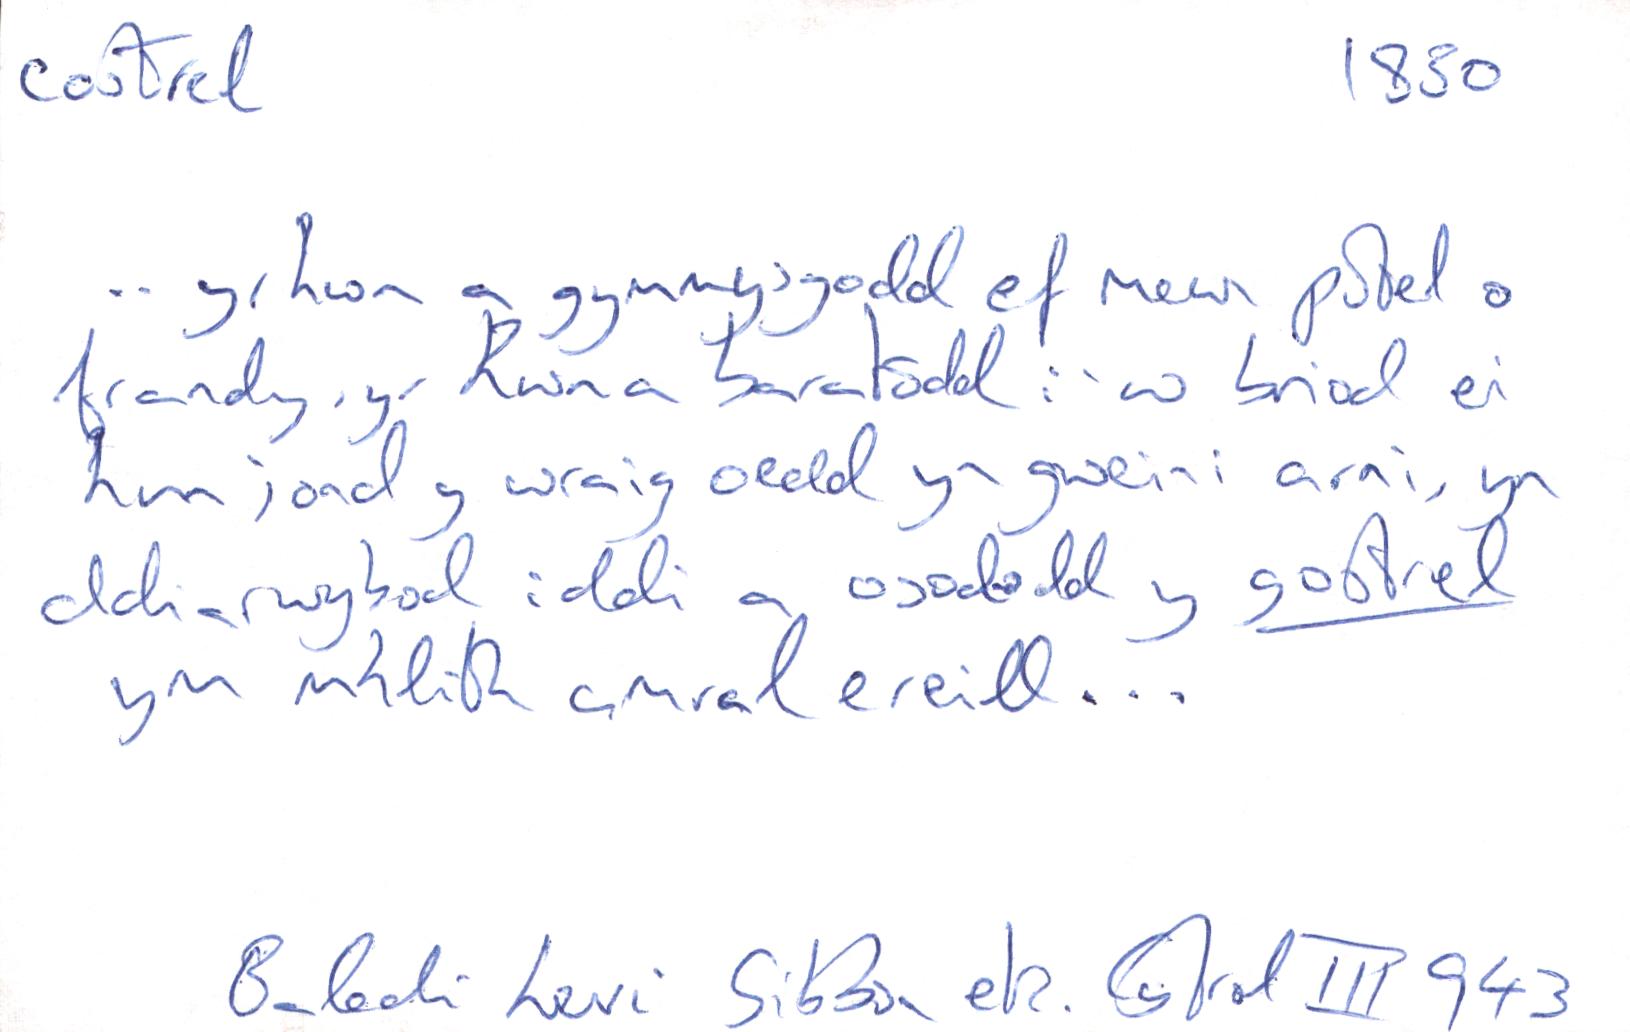 costrel 1830
.. yr hwn a gymmysgodd ef mewn potel o
frandy, yr hwn a baratodd i'w briod ei
hun; ond y wraig oedd yn gweini arni, yn
ddiarwybod iddi a osododd y gostrel
ym mhlith amral ereill...
Baledi Levi Gibbon etc. III 943